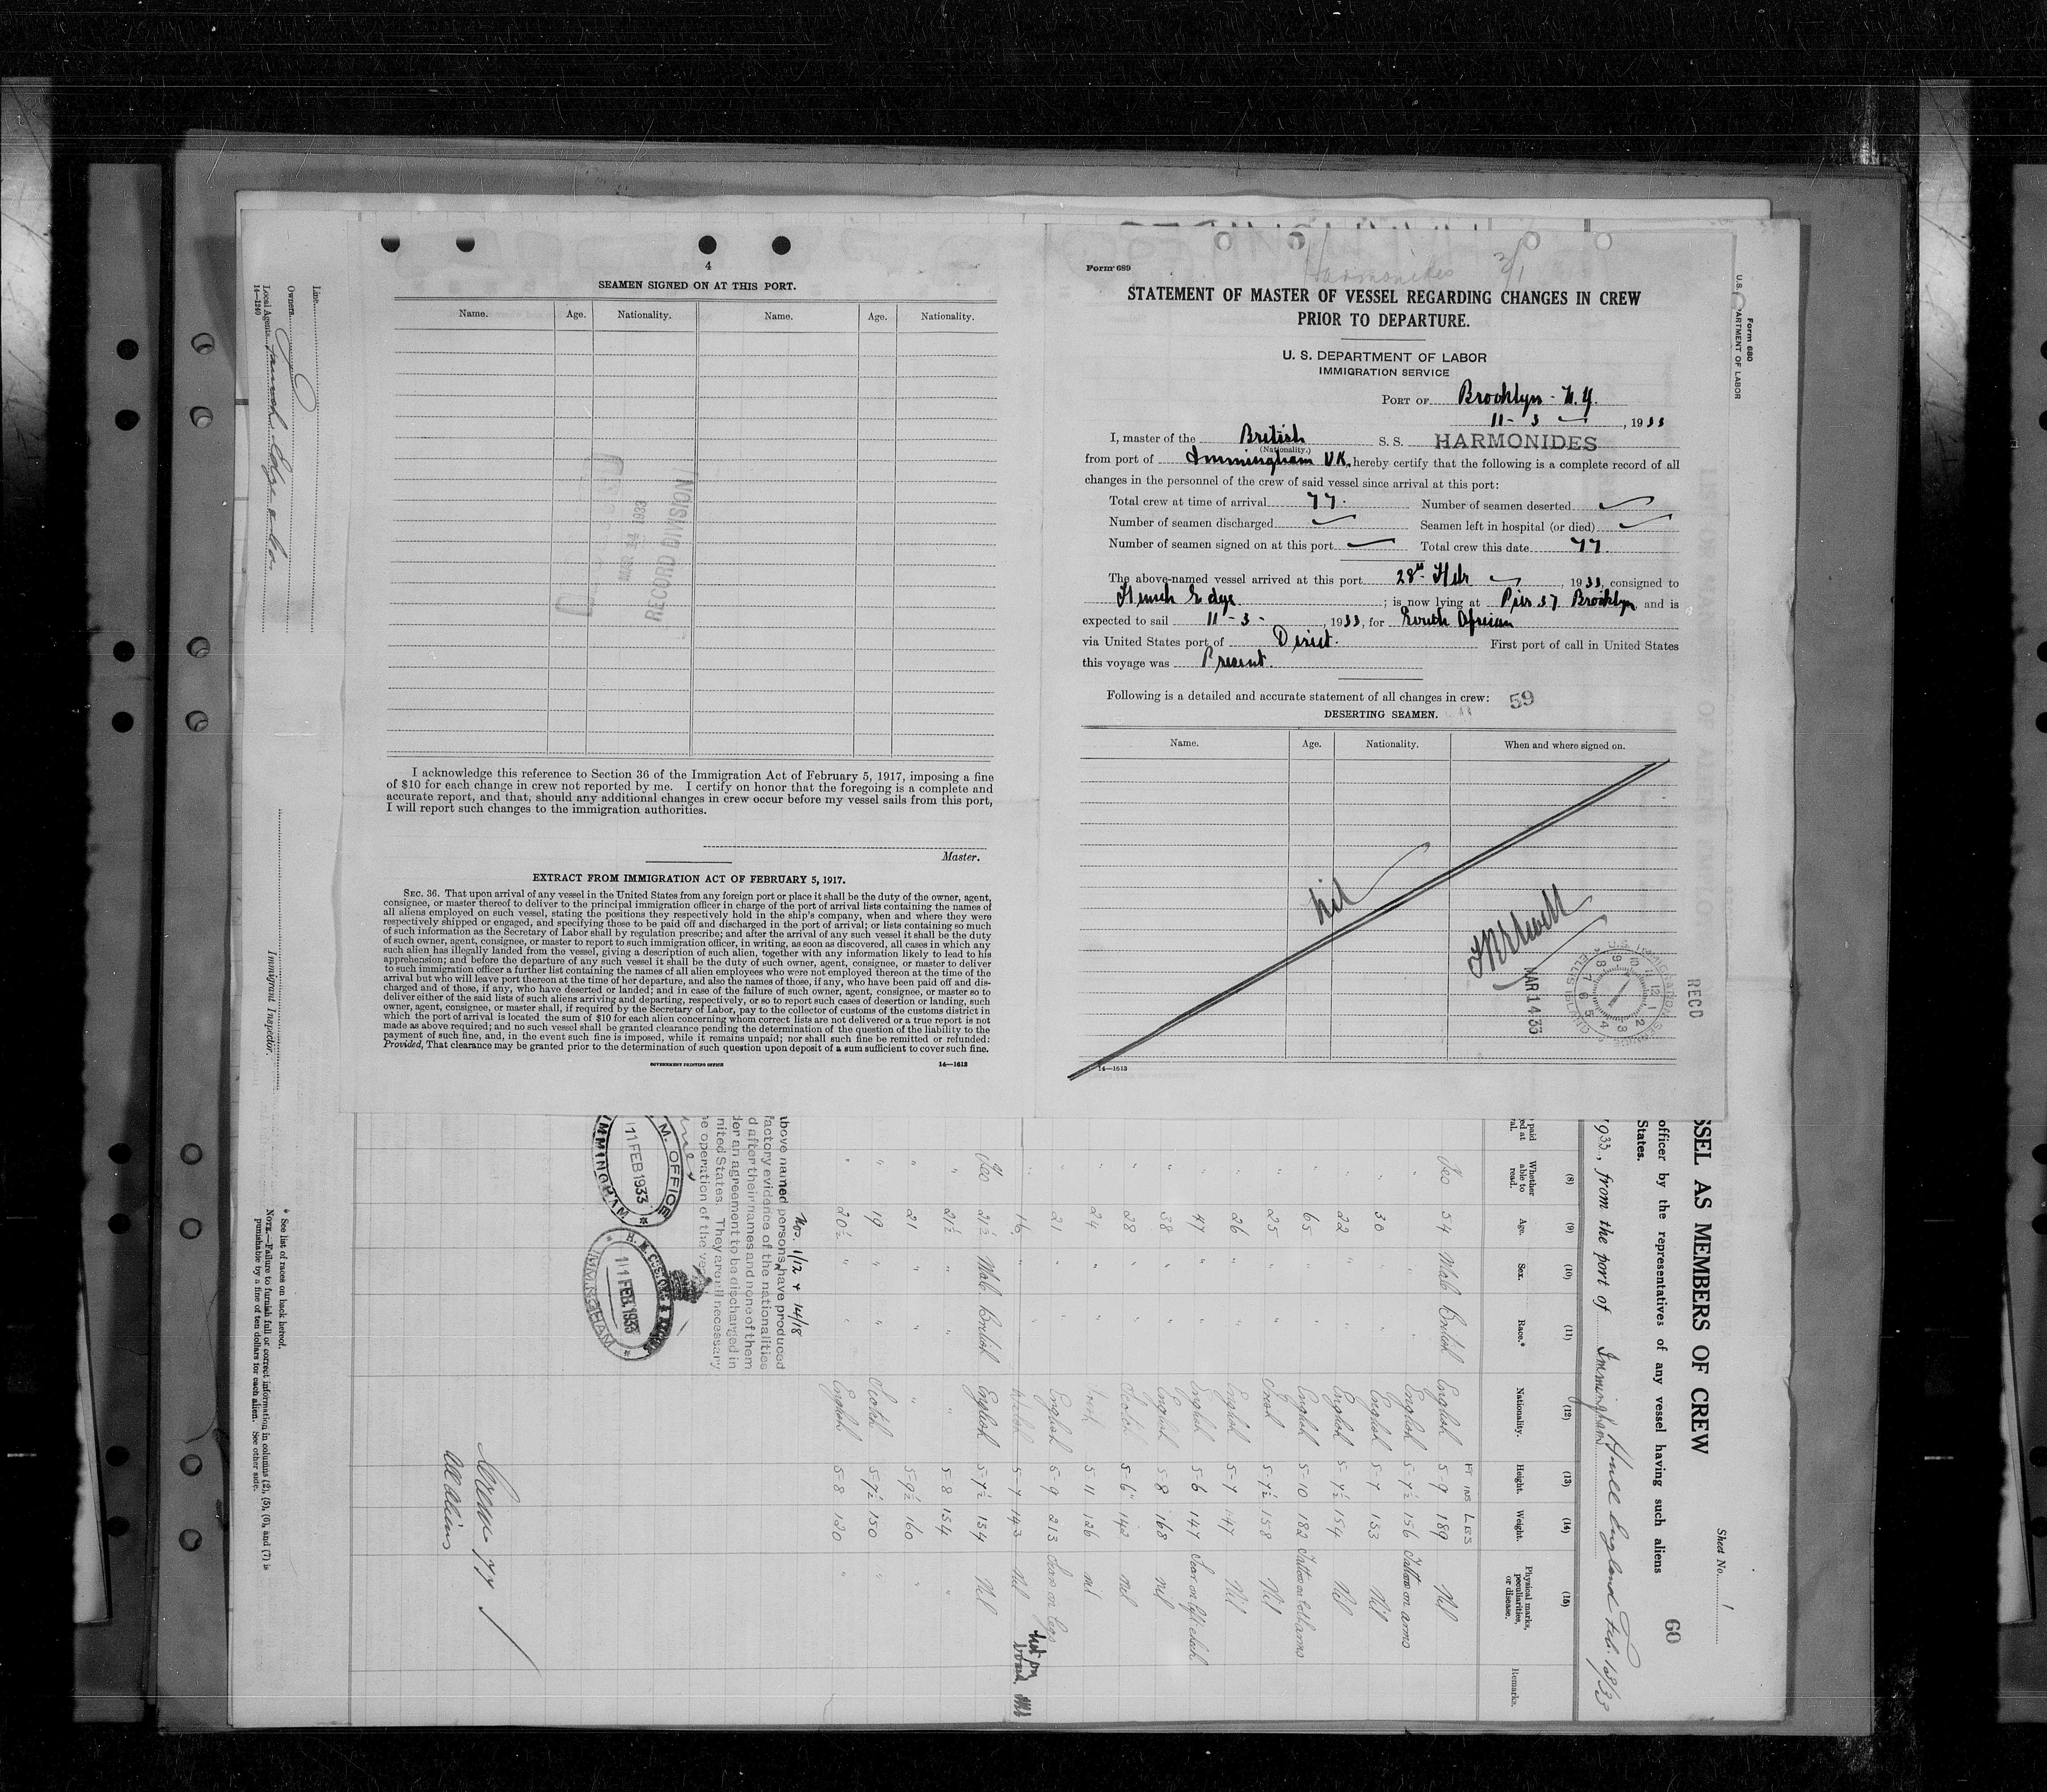 4
SEAMEN SIGNED ON AT THIS PORT.
Name. Age. Nationality. Name. Age. Nationality.
MAR 14 1933
RECORD DIVISION
I acknowledge this reference to Section 36 of the Immigration Act of February 5, 1917, imposing a fine
of $10 for each change in crew not reported by me. I certify on honor that the foregoing is a complete and
accurate report, and that, should any additional changes in crew occur before my vessel sails from this port,
I will report such changes to the immigration authorities.
Master.
EXTRACT FROM IMMIGRATION ACT OF FEBRUARY 5, 1917.
SEC. 36. That upon arrival of any vessel in the United States from any foreign port or place it shall be the duty of the owner, agent,
consignee, or master thereof to deliver to the principal immigration officer in charge of the port of arrival lists containing the names of
all aliens employed on such vessel, stating the positions they respectively hold in the ship's company, when and where they were
respectively shipped or engaged, and specifying those to be paid off and discharged in the port of arrival; or lists containing so much
of such information as the Secretary of Labor shall by regulation prescribe; and after the arrival of any such vessel it shall be the duty
of such owner, agent, consignee, or master to report to such immigration officer, in writing, as soon as discovered, all cases in which any
such alien has illegally landed from the vessel, giving a description of such alien, together with any information likely to lead to his
apprehension; and before the departure of any such vessel it shall be the duty of such owner, agent, consignee, or master to deliver
to such immigration officer a further list containing the names of all alien employees who were not employed thereon at the time of the
arrival but who will leave port thereon at the time of her departure, and also the names of those, if any, who have been paid off and dis-
charged and of those, if any, who have deserted or landed; and in case of the failure of such owner, agent, consignee, or master so to
deliver either of the said lists of such aliens arriving and departing, respectively, or so to report such cases of desertion or landing, such
owner, agent, consignee, or master, shall, if required by the Secretary of Labor, pay to the collector of customs of the customs district in
which the port of arrival is located the sum of $10 for each alien concerning whom correct lists are not delivered or a true report is not
made as above required; and no such vessel shall be granted clearance pending the determination of the question of the liability to the
payment of such fine, and, in the event such fine is imposed, while it remains unpaid; nor shall such fine be remitted or refunded:
Provided, That clearance may be granted prior to the determination of such question upon deposit of a sum sufficient to cover such fine.
GOVERNMENT PRINTING OFFICE 14—1613
Form 689
Harmonides 3/1
STATEMENT OF MASTER OF VESSEL REGARDING CHANGES IN CREW
PRIOR TO DEPARTURE.
U. S. DEPARTMENT OF LABOR
IMMIGRATION SERVICE
PORT OF Brooklyn - N.Y.
11 - 3, 1933
I, master of the British S. S. HARMONIDES
(Nationality.)
from port of Immingham U.K., hereby certify that the following is a complete record of all
changes in the personnel of the crew of said vessel since arrival at this port:
Total crew at time of arrival 77. Number of seamen deserted
Number of seamen discharged Seamen left in hospital (or died)
Number of seamen signed on at this port Total crew this date 77.
The above-named vessel arrived at this port 28th Feb, 1933, consigned to
Funch Edye; is now lying at Pier 37 Brooklyn, and is
expected to sail 11 - 3 -, 1933, for South African
via United States port of Direct. First port of call in United States
this voyage was Present.
Following is a detailed and accurate statement of all changes in crew: 59
DESERTING SEAMEN.
Name. Age. Nationality. When and where signed on.
Nil
MAR 14 33
U.S. IMMIGRATION SERVICE
ELLIS ISLAND
RECD
14—1613
Form 680
U.S. DEPARTMENT OF LABOR
Sheet No. 1
60
SSEL AS MEMBERS OF CREW
officer by the representatives of any vessel having such aliens
States.
1933, from the port of Immingham Hull England Feb. 13/33
(8) (9) (10) (11) (12) (13) (14) (15)
Whether able to read. Age. Sex. Race.* Nationality. Height. Weight. Physical marks, peculiarities, or disease. Remarks.
FT INS LBS
Yes 54 Male British English 5-9 189 Nil
" " " English 5-7½ 156 Tattoo on arms
" 30 " " English 5-7 133 Nil
" 22 " " English 5-7½ 154 Nil
" 65 " " English 5-10 182 Tattoo on both arms
" 25 " " 5-7½ 158 Nil
" 26 " " English 5-7 147 Nil
" 47 " " English 5-6 147 Scar on left cheek
" 38 " " English 5-8 168 nil
" 28 " " Scotch 5-6 142 nil
" 24 " " 5-11 126 nil
" 21 " " English 5-9 213 Scar on legs
" 16 " " Welsh 5-7 143 Nil Not on board
Yes 21½ Male British English 5-7½ 134 Nil
" 21½ " " " 5-8 134 "
" 21 " " " 5-9½ 160 "
" 19 " " Scotch 5-7½ 150 "
" 20½ " " English 5-8 130 "
Nos. 1/12 + 14/18
above named persons have produced
factory evidence of the nationalities
d after their names and none of them
der an agreement to be discharged in
nited States. They are all necessary
e operation of the vessel
M. OFFICE
11 FEB 1933
IMMINGHAM
H. M. CUSTOMS & EXCISE
11 FEB. 1933
IMMINGHAM
Crew 77
Line
Owners
Local Agents Funch Edye & Co.
14—1240
Immigrant Inspector.
* See list of races on back hereof.
NOTE.—Failure to furnish full or correct information in columns (2), (5), (6), and (7) is
punishable by a fine of ten dollars for each alien. See other side.